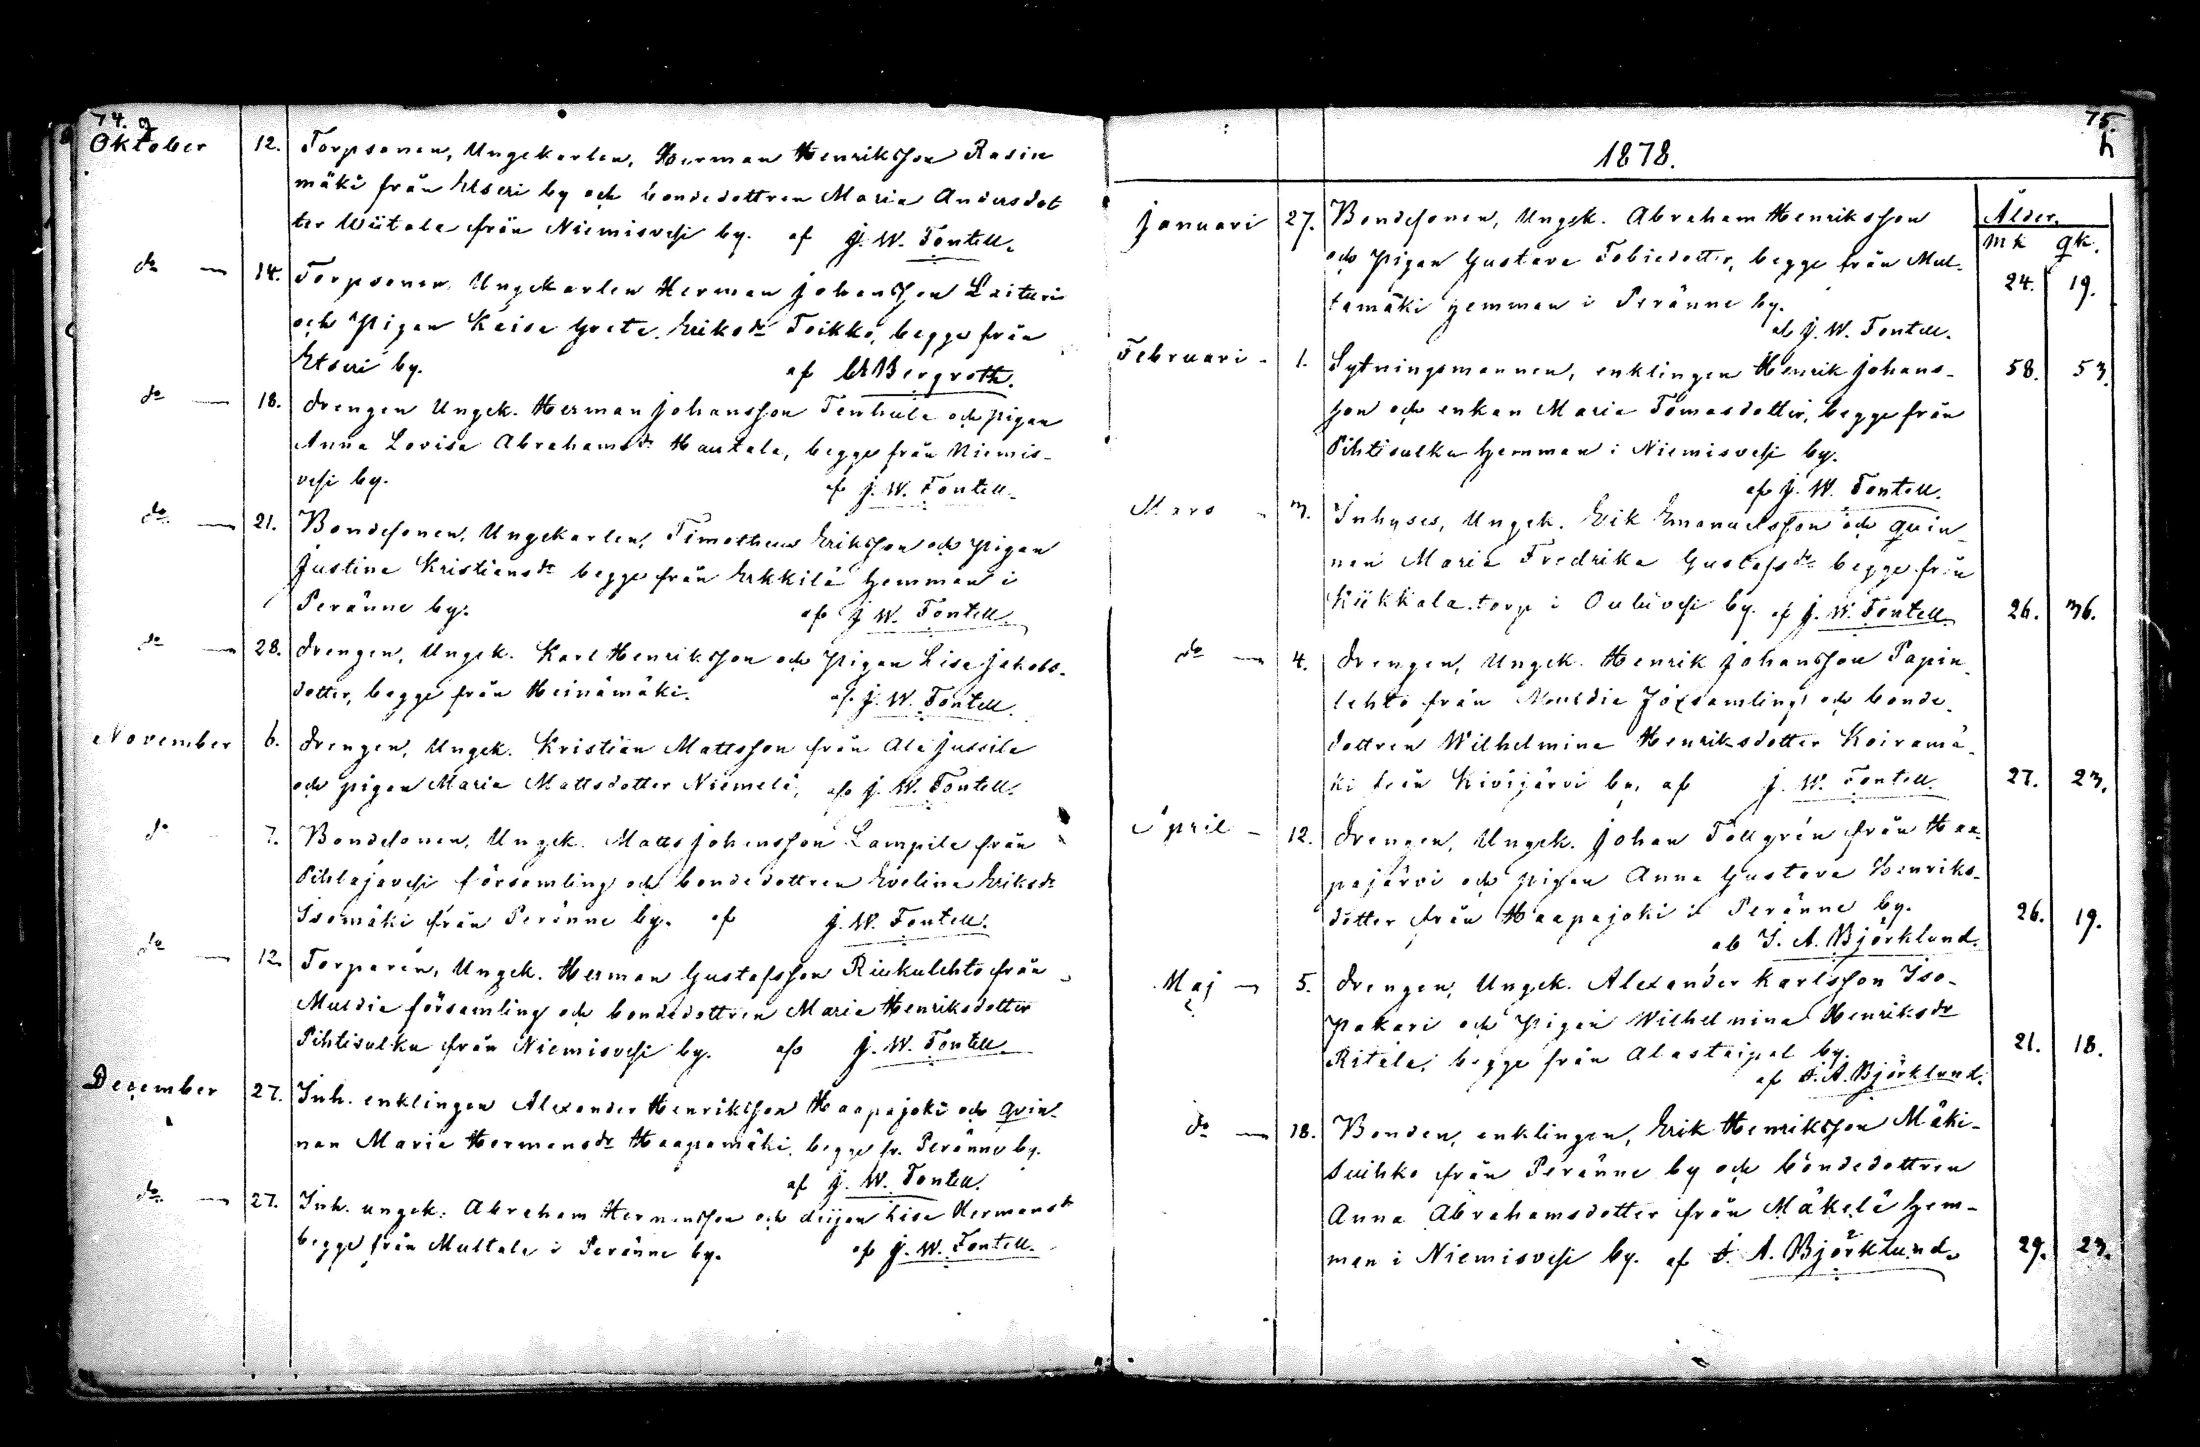 74. g
Oktober 12. Torpsonen, Ungekarlen, Herman Henriksson Rasin
mäki från Etseri by och bondedottren Maria Andersdot
ter Wiitala från Niemisvesi by. af J. W. Fontell.
do — 14. Torpsonen, Ungekarlen Herman Johansson Laituri
och Pigan Kaisa Greta Eriksdr Toikko, begge från
Etseri by. af Bergroth.
do — 18. Drengen Ungek. Herman Johansson Tenhula och pigan
Anna Lovisa Abrahamsdr Hautala, begge från Niemis-
vesi by. af J. W. Fontell.
do — 21. Bondesonen, Ungekarlen, Timotheus Eriksson och Pigan
Justina Kristiansdr begge från Erkkilä hemman i
Peränne by. af J. W. Fontell.
do — 28. Drengen, Ungek. Karl Henriksson och Pigan Lisa Jakobs-
dotter, begge från Heinämäki. af J. W. Fontell.
November 6. Drengen, Ungek. Kristian Mattsson från Ala Jussila
och pigan Maria Mattsdotter Niemelä, af J. W. Fontell.
do 7. Bondesonen, Ungek. Matts Johansson Lampila från
Pihlajavesi församling och bondedottren Evelina Eriksdr
Isomäki från Peränne by. af J. W. Fontell.
do — 12. Torparen, Ungek. Herman Gustafsson Riukulehto från
Multia församling och bondedottren Maria Henriksdotter
Pihtisulku från Niemisvesi by. af J. W. Fontell.
December 27. Inh. enklingen Alexander Henriksson Haapajoki och qvin-
nan Maria Hermansdr Haapamäki, begge fr. Peränne by.
af J. W. Fontell.
do — 27. Inh. ungek. Abraham Hermansson och Lisa Hermansdr
begge från Multala i Peränne by. af J. W. Fontell.
75.
h
1878.
Ålder.
mk qk.
Januari 27. Bondesonen, Ungek. Abraham Henriksson
och pigan Gustava Tobiedotter, begge från Mul-
tamäki hemman i Peränne by. 24. 19.
af J. W. Fontell.
Februari - 1. Sytningsmannen, enklingen Henrik Johans- 58. 53.
son och enkan Maria Tomasdotter, begge från
Pihtisulku hemman i Niemisvesi by.
af J. W. Fontell.
Mars - 3. Inhyses, Ungek. Erik Emanuelsson och qvin-
nan Maria Fredrika Gustafsdr begge från
Kiikkala torp i Ouluvesi by. af J. W. Fontell. 26. 36.
do — 4. Drengen, Ungek. Henrik Johansson Papin-
lehto från Multia församling och bonde-
dottren Wilhelmina Henriksdotter Koiramä-
ki från Kivijärvi by. af J. W. Fontell. 27. 23.
April - 12. Drengen, Ungek. Johan Tallgrén från Haa-
pajärvi och pigan Anna Gustava Henriks-
dotter från Haapajoki i Peränne by. 26. 19.
af J. A. Björklund.
Maj — 5. Drengen, Ungek. Alexander Karlsson Iso-
Pakari och Pigan Wilhelmina Henriksdr
Ritala, begge från Alastaipal by. 21. 18.
af J. A. Björklund.
do — 18. Bonden, enklingen, Erik Henriksson Mäki-
Suihko från Peränne by och bondedottren
Anna Abrahamsdotter från Mäkelä hem-
man i Niemisvesi by. af J. A. Björklund. 29. 23.